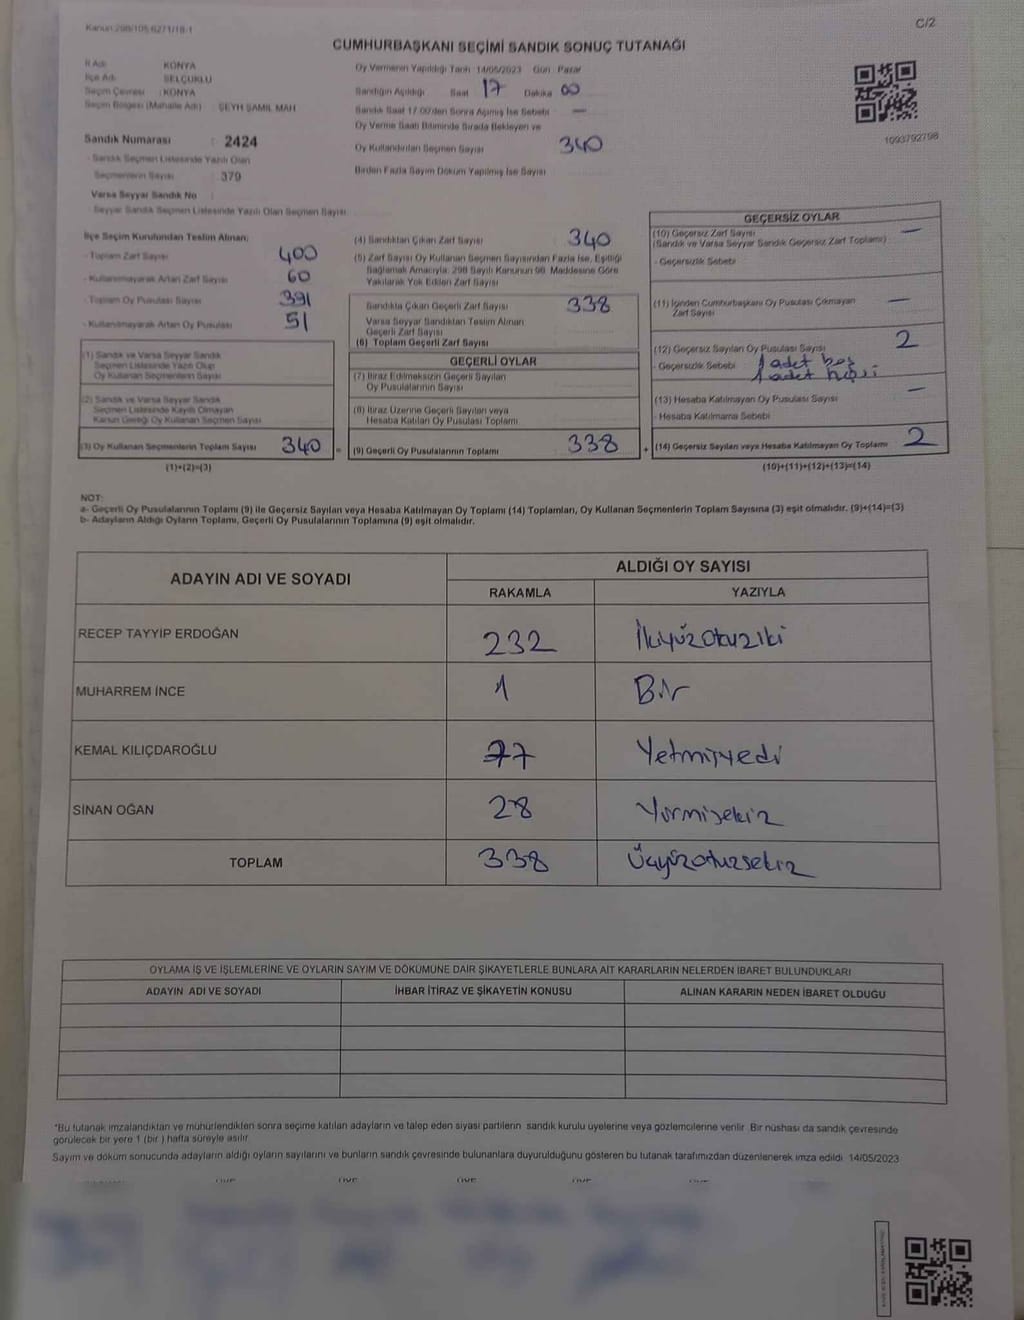 Kanun:298/105,6271/18-1
C/2
CUMHURBAŞKANI SEÇİMİ SANDIK SONUÇ TUTANAĞI
İl Adı : KONYA
İlçe Adı : SELÇUKLU
Seçim Çevresi : KONYA
Seçim Bölgesi (Mahalle Adı) : ŞEYH ŞAMİL MAH
Sandık Numarası : 2424
- Sandık Seçmen Listesinde Yazılı Olan
Seçmenlerin Sayısı : 379
Varsa Seyyar Sandık No :
- Seyyar Sandık Seçmen Listesinde Yazılı Olan Seçmen Sayısı
Oy Vermenin Yapıldığı Tarih 14/05/2023 Gün Pazar
Sandığın Açıldığı Saat 17 Dakika 00
Sandık Saat 17.00'den Sonra Açılmış İse Sebebi —
Oy Verme Saati Bitiminde Sırada Bekleyen ve
Oy Kullandırılan Seçmen Sayısı 340
Birden Fazla Sayım Döküm Yapılmış İse Sayısı
1093792798
İlçe Seçim Kurulundan Teslim Alınan;
- Toplam Zarf Sayısı 400
- Kullanılmayarak Artan Zarf Sayısı 60
- Toplam Oy Pusulası Sayısı 391
- Kullanılmayarak Artan Oy Pusulası 51
(1) Sandık ve Varsa Seyyar Sandık
Seçmen Listesinde Yazılı Olup
Oy Kullanan Seçmenlerin Sayısı
(2) Sandık ve Varsa Seyyar Sandık
Seçmen Listesinde Kayıtlı Olmayan
Kanun Gereği Oy Kullanan Seçmen Sayısı
(3) Oy Kullanan Seçmenlerin Toplam Sayısı 340 =
(1)+(2)=(3)
(4) Sandıktan Çıkan Zarf Sayısı 340
(5) Zarf Sayısı Oy Kullanan Seçmen Sayısından Fazla İse, Eşitliği
Sağlamak Amacıyla; 298 Sayılı Kanunun 98. Maddesine Göre
Yakılarak Yok Edilen Zarf Sayısı
Sandıkta Çıkan Geçerli Zarf Sayısı 338
Varsa Seyyar Sandıktan Teslim Alınan
Geçerli Zarf Sayısı
(6) Toplam Geçerli Zarf Sayısı
GEÇERLİ OYLAR
(7) İtiraz Edilmeksizin Geçerli Sayılan
Oy Pusulalarının Sayısı
(8) İtiraz Üzerine Geçerli Sayılan veya
Hesaba Katılan Oy Pusulası Toplamı
(9) Geçerli Oy Pusulalarının Toplamı 338 +
GEÇERSİZ OYLAR
(10) Geçersiz Zarf Sayısı —
(Sandık ve Varsa Seyyar Sandık Geçersiz Zarf Toplamı)
- Geçersizlik Sebebi
(11) İçinden Cumhurbaşkanı Oy Pusulası Çıkmayan —
Zarf Sayısı
(12) Geçersiz Sayılan Oy Pusulası Sayısı 2
- Geçersizlik Sebebi 1 adet boş
1 adet
(13) Hesaba Katılmayan Oy Pusulası Sayısı —
- Hesaba Katılmama Sebebi
(14) Geçersiz Sayılan veya Hesaba Katılmayan Oy Toplamı 2
(10)+(11)+(12)+(13)=(14)
NOT:
a- Geçerli Oy Pusulalarının Toplamı (9) ile Geçersiz Sayılan veya Hesaba Katılmayan Oy Toplamı (14) Toplamları, Oy Kullanan Seçmenlerin Toplam Sayısına (3) eşit olmalıdır. (9)+(14)=(3)
b- Adayların Aldığı Oyların Toplamı, Geçerli Oy Pusulalarının Toplamına (9) eşit olmalıdır.
ADAYIN ADI VE SOYADI
ALDIĞI OY SAYISI
RAKAMLA YAZIYLA
RECEP TAYYİP ERDOĞAN 232 İkiyüzotuziki
MUHARREM İNCE 1 Bir
KEMAL KILIÇDAROĞLU 77 Yetmişyedi
SİNAN OĞAN 28 Yirmisekiz
TOPLAM 338 Üçyüzotuzsekiz
OYLAMA İŞ VE İŞLEMLERİNE VE OYLARIN SAYIM VE DÖKÜMÜNE DAİR ŞİKAYETLERLE BUNLARA AİT KARARLARIN NELERDEN İBARET BULUNDUKLARI
ADAYIN ADI VE SOYADI İHBAR İTİRAZ VE ŞİKAYETİN KONUSU ALINAN KARARIN NEDEN İBARET OLDUĞU
*Bu tutanak imzalandıktan ve mühürlendikten sonra seçime katılan adayların ve talep eden siyasi partilerin sandık kurulu üyelerine veya gözlemcilerine verilir. Bir nüshası da sandık çevresinde
görülecek bir yere 1 (bir ) hafta süreyle asılır.
Sayım ve döküm sonucunda adayların aldığı oyların sayılarını ve bunların sandık çevresinde bulunanlara duyurulduğunu gösteren bu tutanak tarafımızdan düzenlenerek imza edildi 14/05/2023